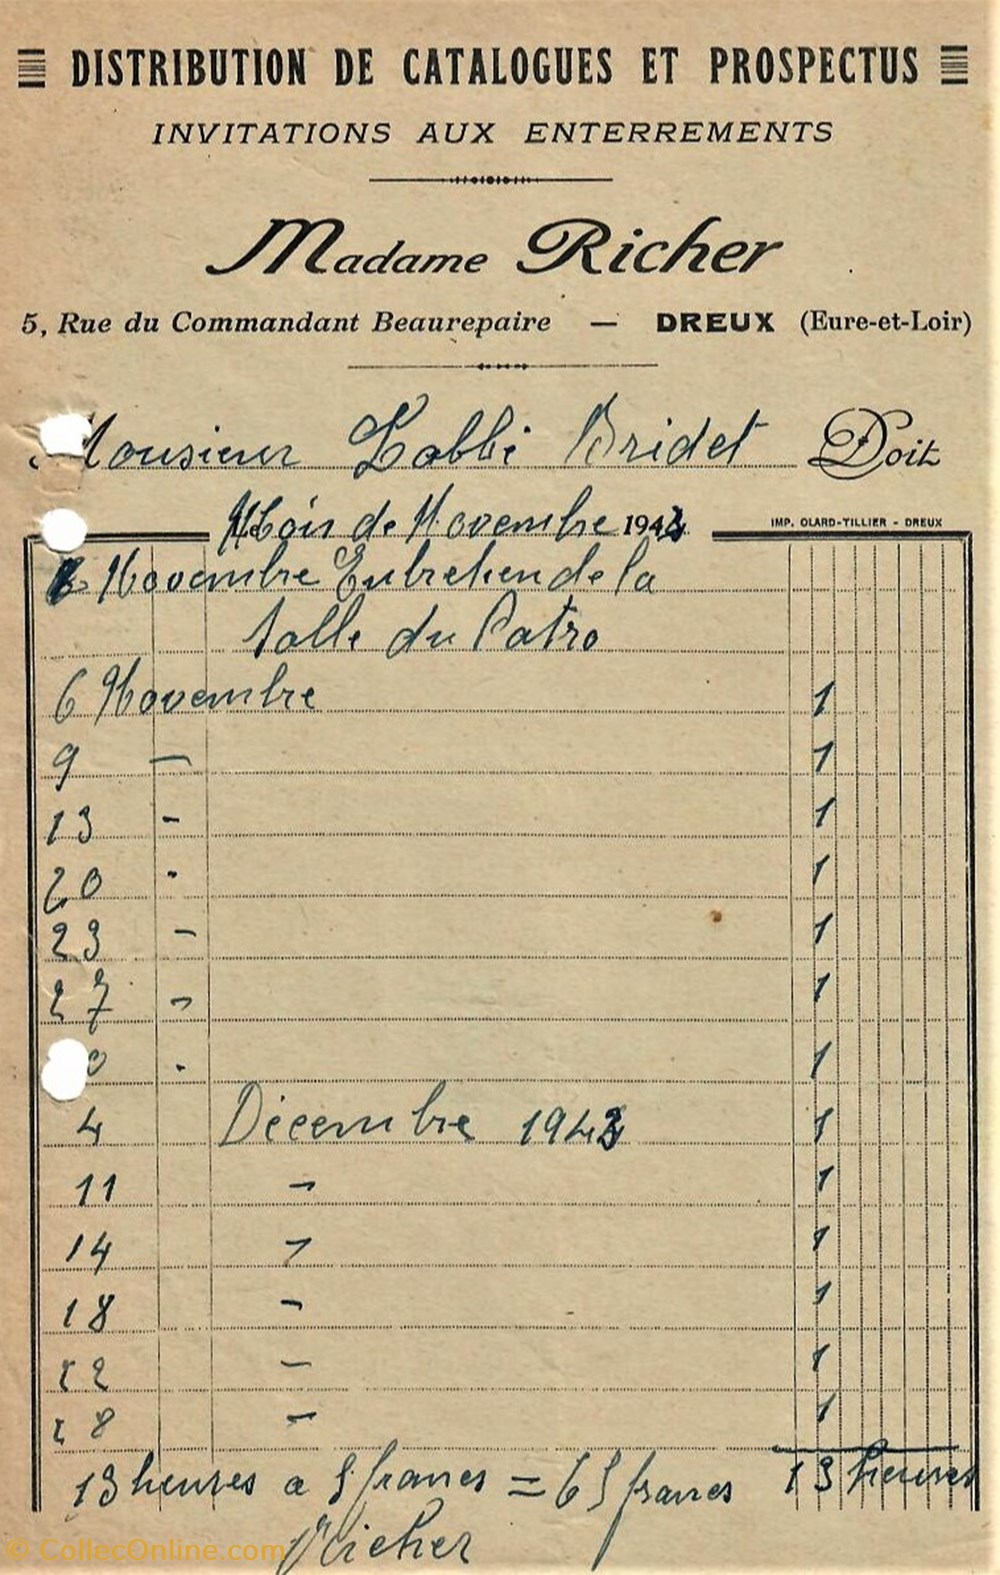 DISTRIBUTION DE CATALOGUES ET PROSPECTUS
INVITATIONS AUX ENTERREMENTS
Madame Richer
5, Rue du Commandant Beaurepaire — DREUX (Eure-et-Loir)
Monsieur Labbé Bridet Doit
Mois de Novembre 1943
IMP. OLARD-TILLIER - DREUX
Novembre Entretien de la
Salle du Patro
6 Novembre 1
9 — 1
13 - 1
20 - 1
23 - 1
27 - 1
0 - 1
4 Décembre 1943 1
11 - 1
14 - 1
18 - 1
22 - 1
28 - 1
13 heures a 5 francs = 65 francs 13 heures
Richer
© CollecOnline.com